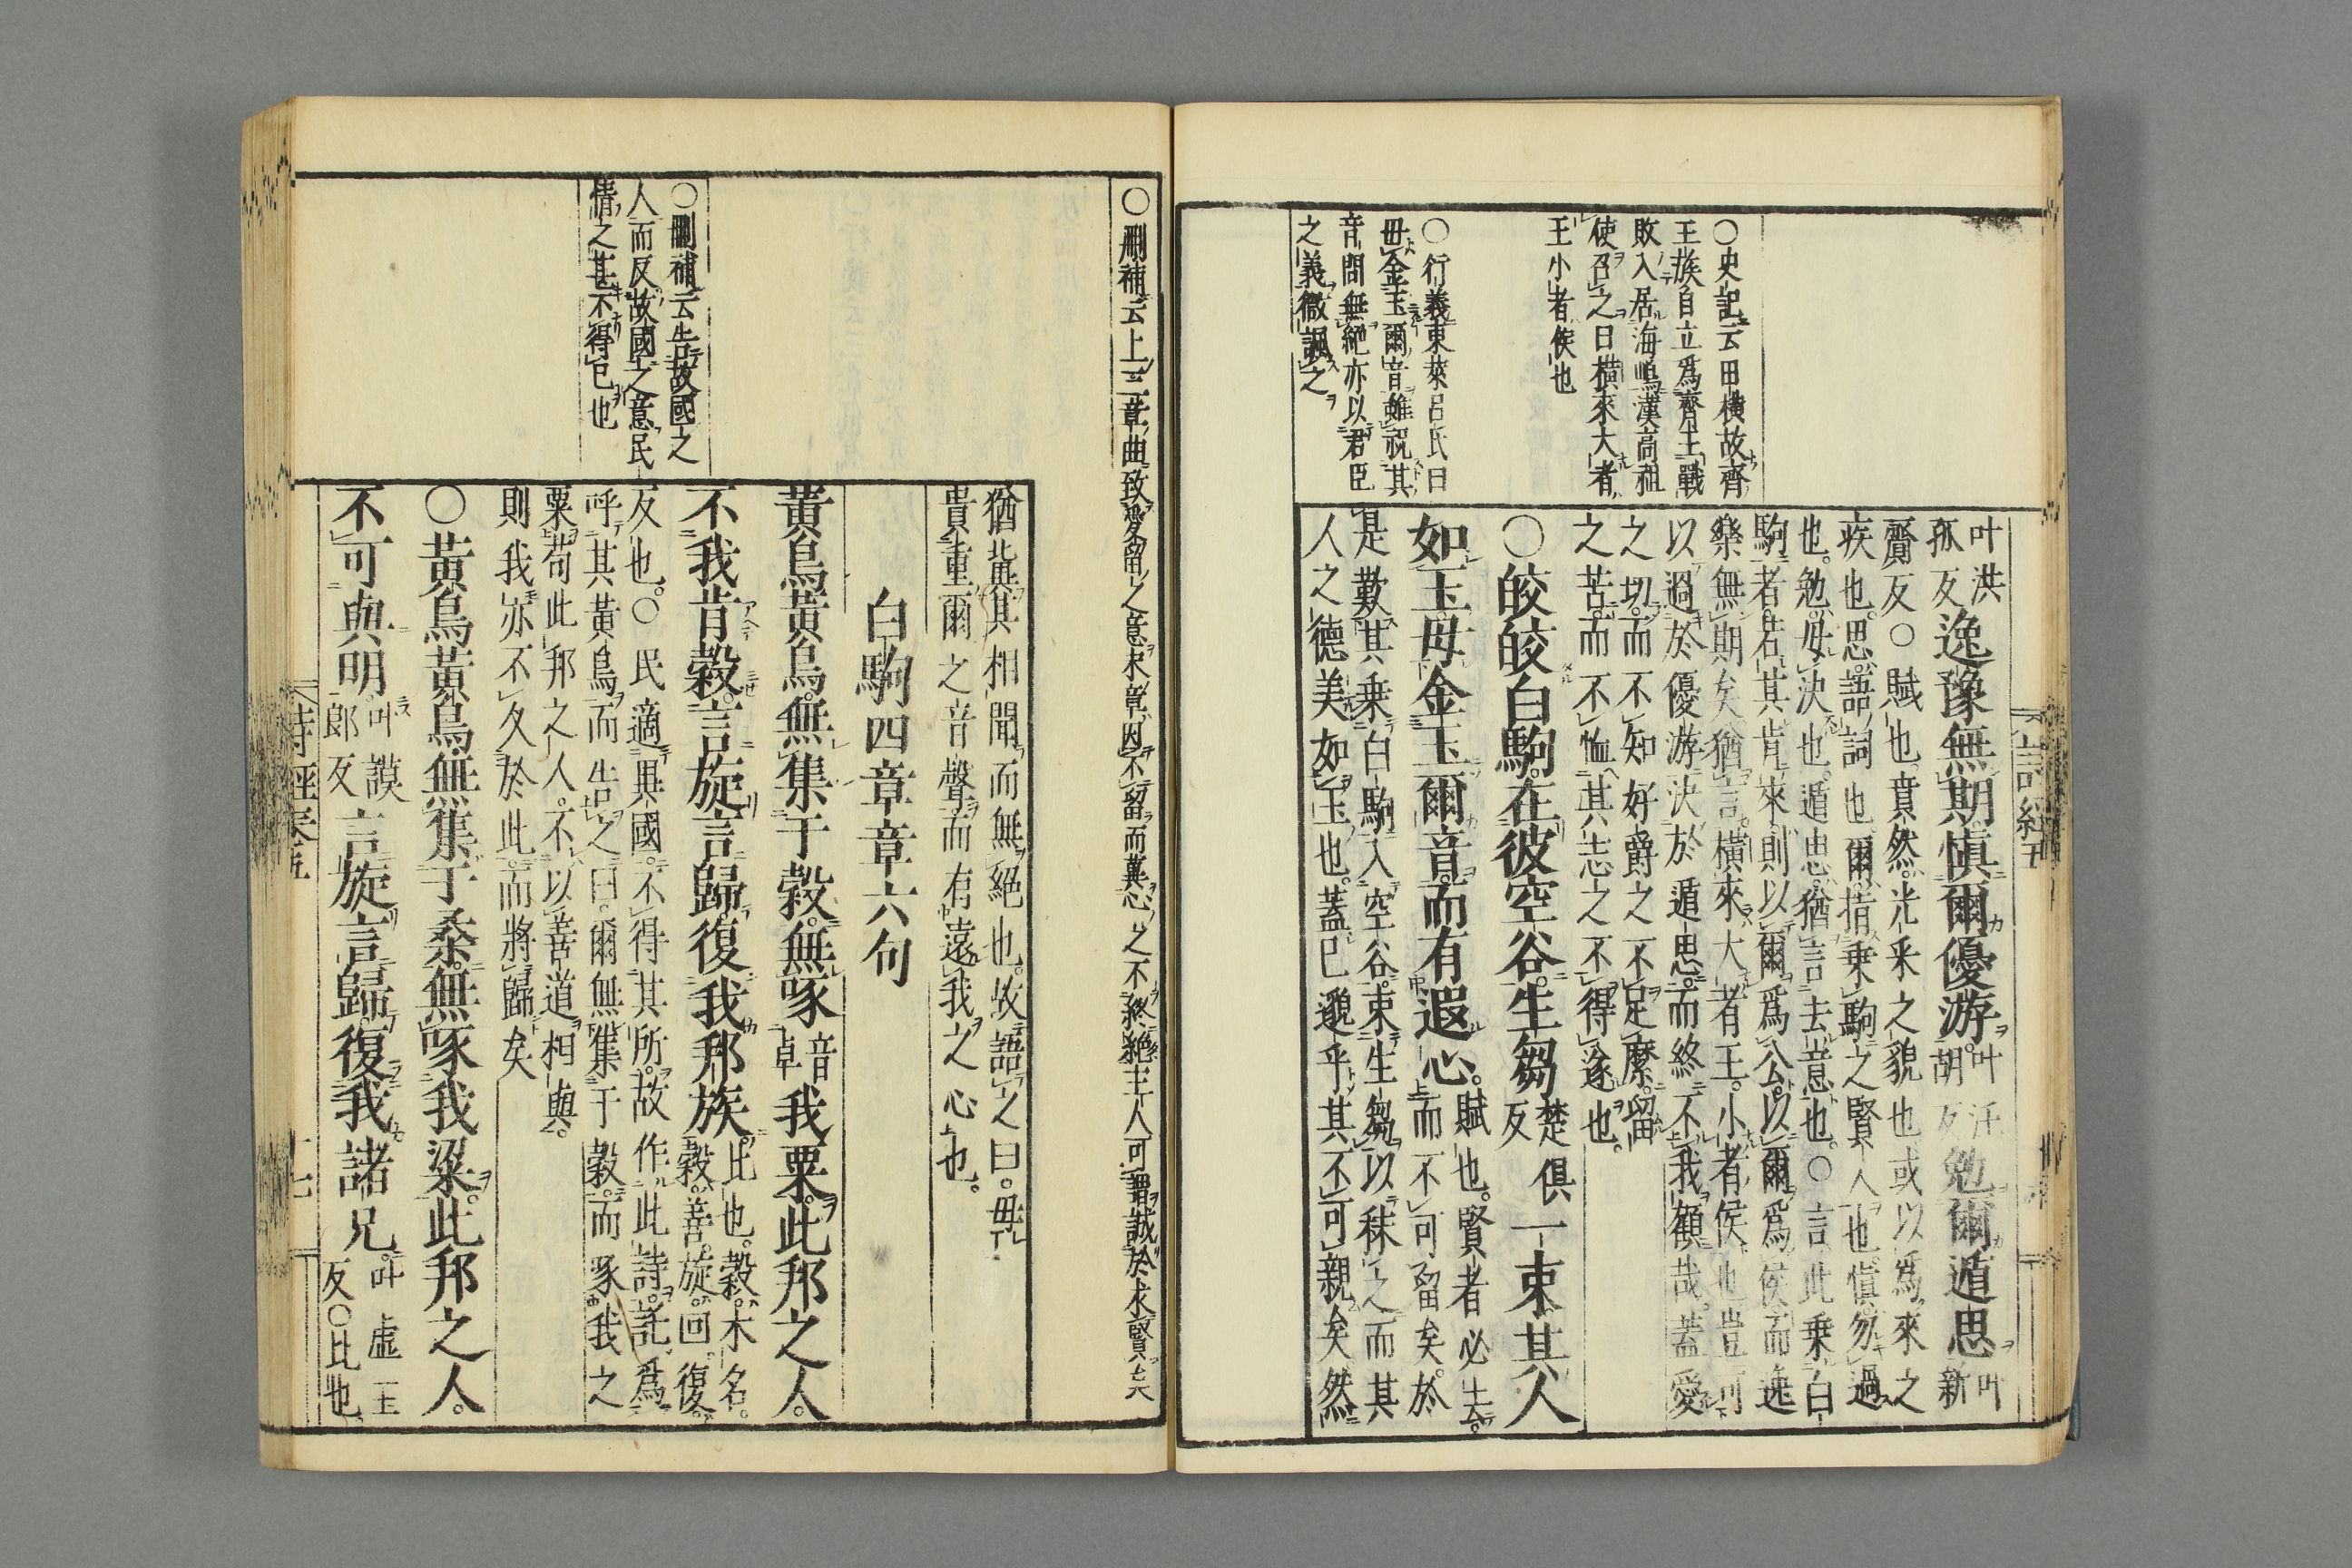 叶洪
孤反逸豫無期慎爾優游叶汪
胡反勉爾遁思叶
新
賷反○賦也賁然光采之貌也或以爲來之
疾也思語詞也爾指乗駒之賢人也慎勿過
也勉毋決也遁思猶言去意也○言此乗白
駒者若其肯來則以爾爲公以爾爲侯而逸
樂無期矣猶言橫來大者王小者侯也豈可
以過於優游決於遁思而終不我顧哉蓋愛
之切而不知好爵之不足縻留
之苦而不恤其志之不得遂也
○皎皎白駒在彼空谷生芻楚俱
反一束其人
如玉毋金玉爾音而有遐心賦也賢者必去
而不可留矣於
是歎其乗白駒入空谷束生芻以秣之而其
人之德美如玉也蓋已邈乎其不可親矣然
○史記云田横故齊
王族自立爲齊王戰
敗入居海嶋漢高祖
使召之曰横來大者
王小者侯也
○行義東萊呂氏曰
毋金玉爾音雖祝其
音問無絕亦以君臣
之義微諷之
詩經五
○刪補云上三章曲致愛留之意末章因不留而冀心之不終絶主人可謂誠於求賢矣
猶冀其相聞而無絕也故語之曰毋
貴重爾之音聲而有遠我之心也
白駒四章章六句
黃鳥黃鳥無集于穀無啄音
卓我粟此邦之人
不我肯穀言旋言歸復我邦族比也穀木名
穀善旋回復
反也○民適異國不得其所故作此詩託爲
呼其黃鳥而告之曰爾無集于穀而啄我之
粟苟此邦之人不以善道相與
則我亦不久於此而將歸矣
○黃鳥黃鳥無集于桑無啄我粱此邦之人
不可與明叶謨
郎反言旋言歸復我諸兄叶虛王
反○比也
○刪補云告故國之
人而反故國之意民
情之甚不得已也
詩經卷五